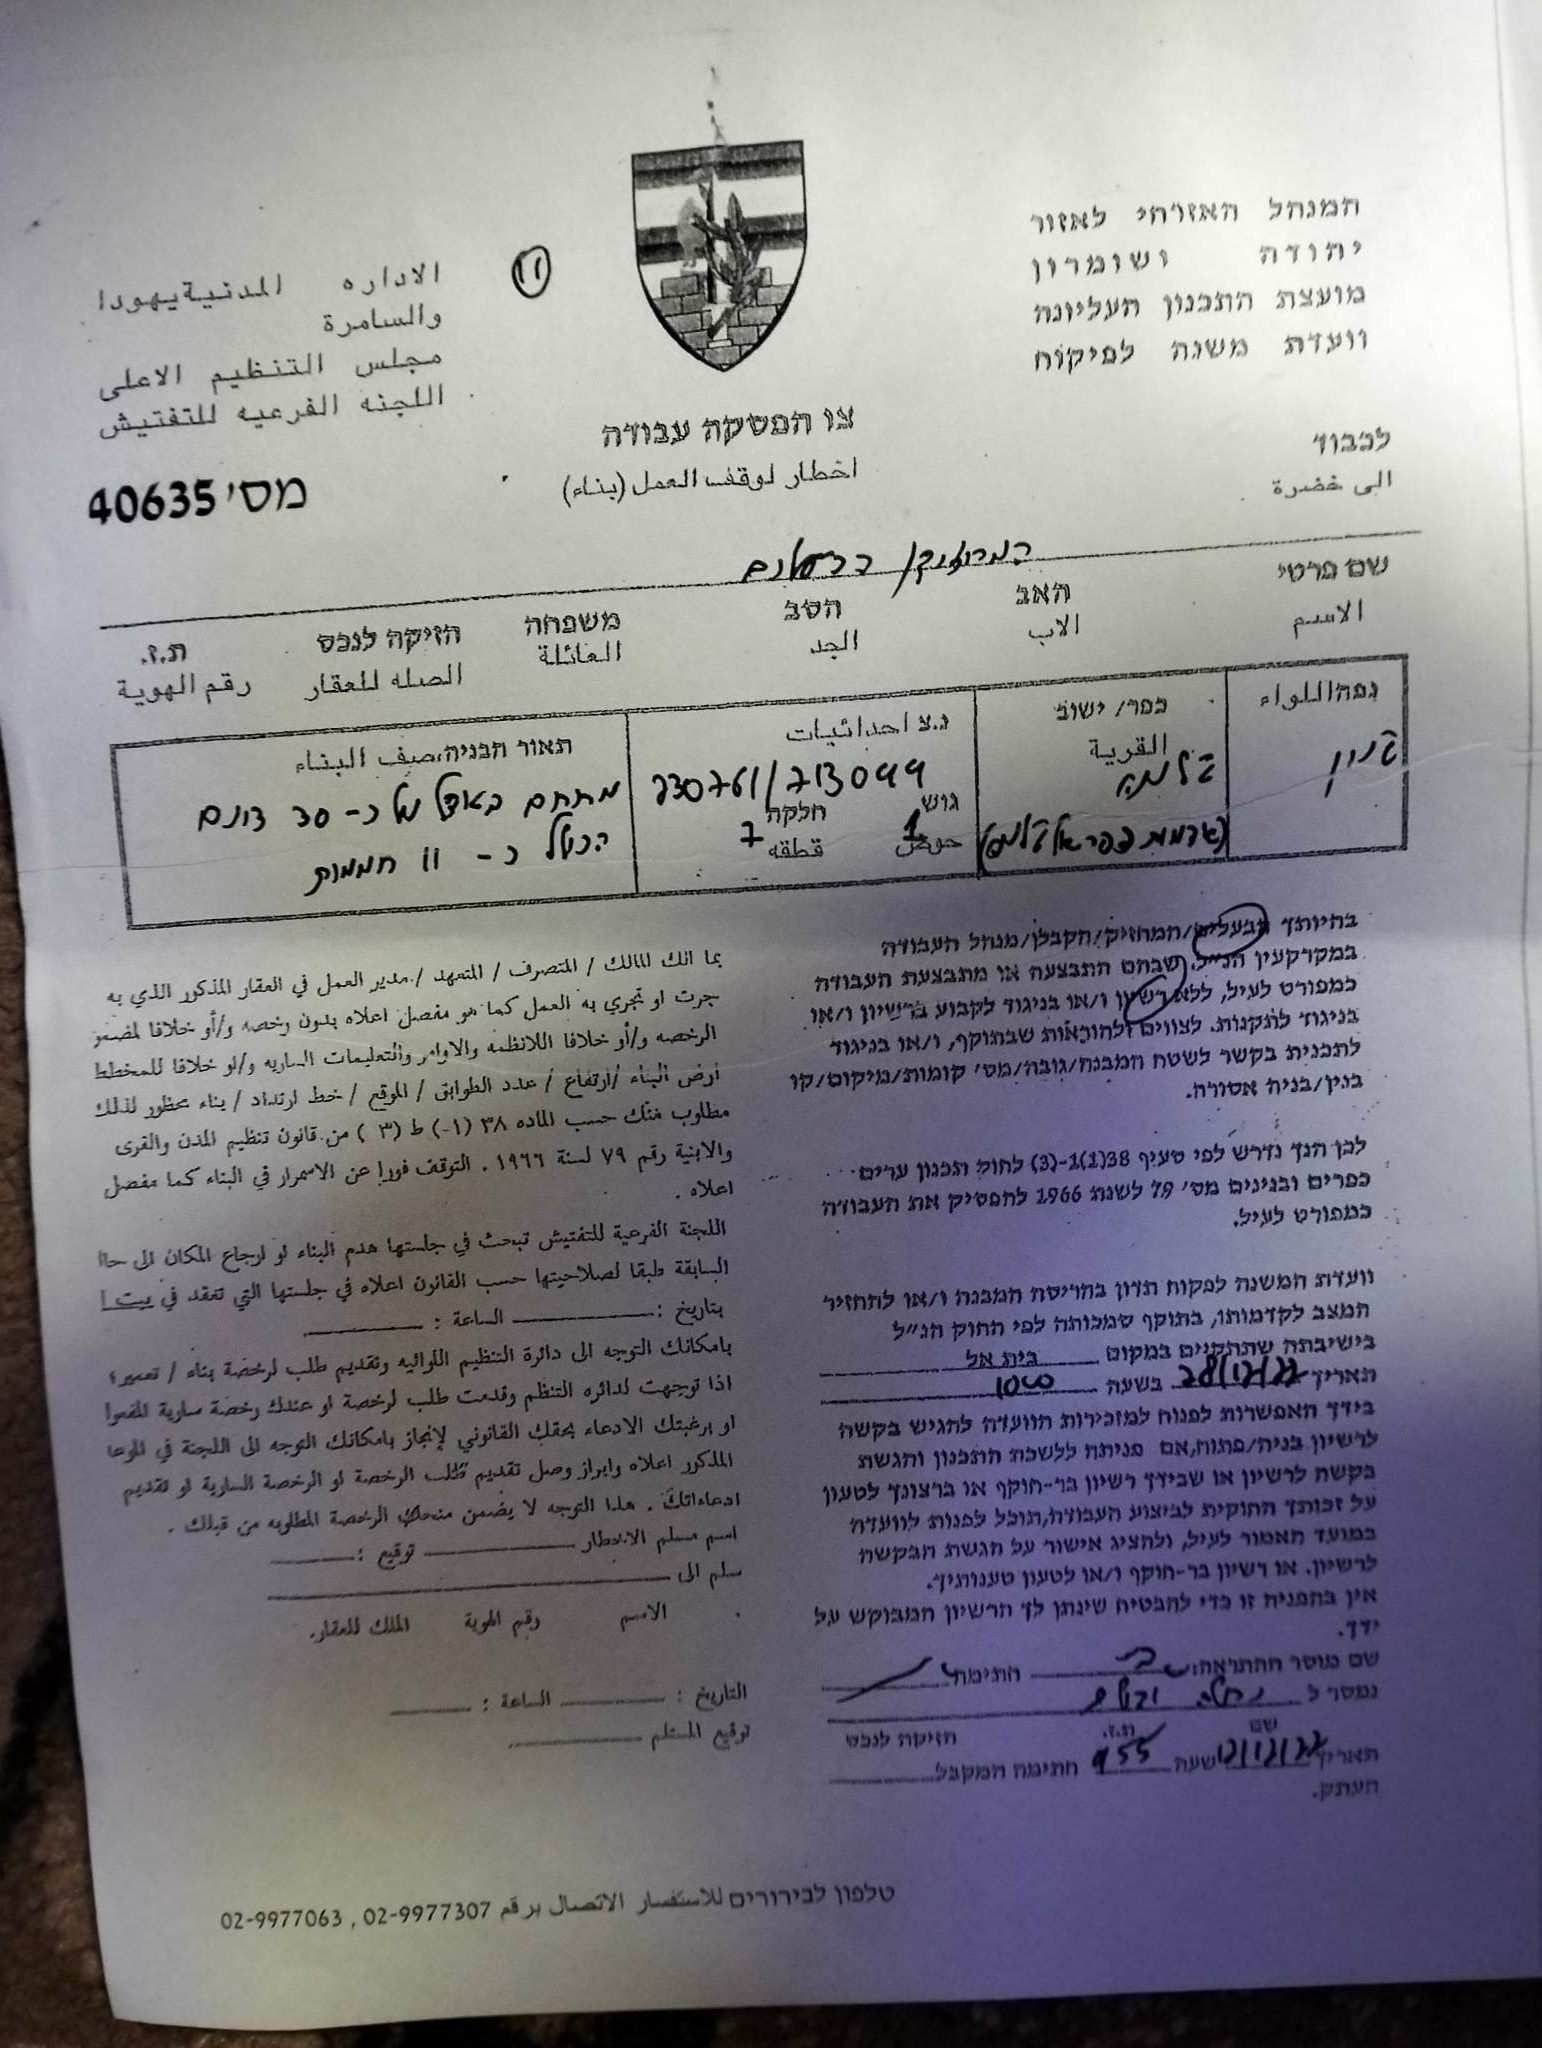 המנהל האזרחי לאזור
יהודה ושומרון
מועצת התכנון העליונה
וועדת משנה לפיקוח
الاداره المدنية يهودا
والسامرة
مجلس التنظيم الاعلى
اللجنه الفرعيه للتفتيش
11
צו הפסקה עבודה
اخطار لوقف العمل (بناء)
מס' 40635
לכבוד
الى حضرة
המחזיקן
שם פרטי האב הסב משפחה הזיקה לנכס ת.ז.
الاسم الاب الجد العائلة الصله للعقار رقم الهوية
נפה/اللواء כפר/ישוב נ.צ احداثيات תאור הבניה/صيف البناء
القرية
230761/713099
גוש חלקה
حوض 1 قطقه 7
מתחם של כ- 30 דונם
הכולל כ- 11 חממות
בהיותך הבעלים/המחזיק/הקבלן/מנהל העבודה
במקרקעין הנ"ל, שבהם התבצעה או מתבצעת העבודה
כמפורט לעיל, ללא רשיון ו/או בניגוד לקבוע ברשיון ו/או
בניגוד לתקנות, לצווים ולהוראות שבתוקף, ו/או בניגוד
לתכנית בקשר לשטח המבנה/גובה/מס' קומות/מיקום/קו
בנין/בניה אסורה.
לכן הנך נדרש לפי סעיף 38(1)-1(3) לחוק תכנון ערים
כפרים ובנינים מס' 79 לשנת 1966 להפסיק את העבודה
כמפורט לעיל.
וועדת המשנה לפקוח תדון בהריסת המבנה ו/או להחזיר
המצב לקדמותו, בתוקף סמכותה לפי החוק הנ"ל
בישיבתה שתתקיים במקום בית אל
תאריך 28/12/22 בשעה 1000
בידך האפשרות לפנות למזכירות הוועדה להגיש בקשה
לרשיון בניה/פתוח, אם פניתה ללשכת התכנון והגשת
בקשה לרשיון או שבידך רשיון בר-תוקף או ברצונך לטעון
על זכותך החוקית לביצוע העבודה, תוכל לפנות לוועדה
במועד האמור לעיל, ולהציג אישור על הגשת הבקשה
לרשיון. או רשיון בר-תוקף ו/או לטעון טענותיך.
אין בהפניה זו כדי להבטיח שינתן לך הרשיון המבוקש על
ידך.
שם מוסר ההתראה: חתימה
נמסר ל
שם ת.ז. הזיקה לנכס
תאריך 12/12/22 שעה 955 חתימה המקבל
העתק.
بما انك المالك / المتصرف / المتعهد / مدير العمل في العقار المذكور الذي به
جرت او تجري به العمل كما هو مفصل اعلاه بدون رخصه و/أو خلافا لمضمو
الرخصه و/أو خلافا اللانظمه والاوامر والتعليمات الساريه و/او خلافا للمخطط
ارض البناء /ارتفاع / عدد الطوابق / الموقع / خط ارتداد / بناء محظور لذلك
مطلوب منك حسب الماده ٣٨ (١-) ط (٣ ) من قانون تنظيم المدن والقرى
والابنية رقم ٧٩ لسنة ١٩٦٦ . التوقف فورا عن الاسمرار في البناء كما مفصل
اعلاه .
اللجنة الفرعية للتفتيش تبحث في جلستها هدم البناء او ارجاع المكان الى حاا
السابقة طبقا لصلاحيتها حسب القانون اعلاه في جلستها التي تعقد في بيت ا
بتاريخ : الساعة :
بامكانك التوجه الى دائرة التنظيم اللوائيه وتقديم طلب لرخصة بناء / تعمير؛
اذا توجهت لدائره التنظم وقدمت طلب لرخصة او عندك رخصة سارية المفعوا
او برغبتك الادعاء بحقك القانوني لإنجاز بامكانك التوجه الى اللجنة في الموعا
المذكور اعلاه وابراز وصل تقديم طلب الرخصة او الرخصة السارية او تقديم
ادعاءاتك . هذا التوجه لا يضمن منحك الرخصة المطلوبه من قبلك .
اسم مسلم الاخطار توقيع :
سلم الى
الاسم رقم الهوية الملك للعقار.
التاريخ : الساعة :
توقيع المستلم
טלפון לבירורים للاستفسار الاتصال برقم 02-9977307 , 02-9977063